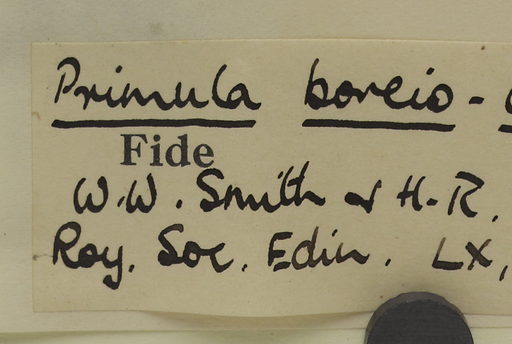 Primula boreio-
Fide
W.W. Smith & H.R.
Roy. Soc. Edin. LX,